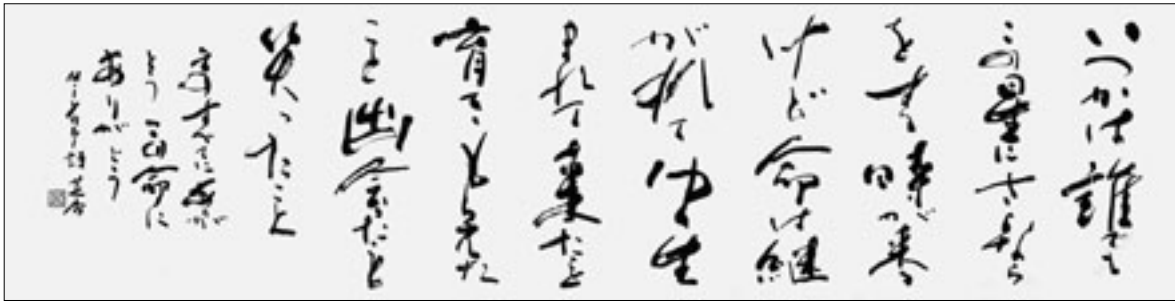 いつかは誰でも
この星にさよなら
をする時が来る
けど命は継
がれてゆく生
まれて来たこと
育ててもらえた
こと出会ったこと
笑ったこと
そのすべてにありが
とうこの命に
ありがとう